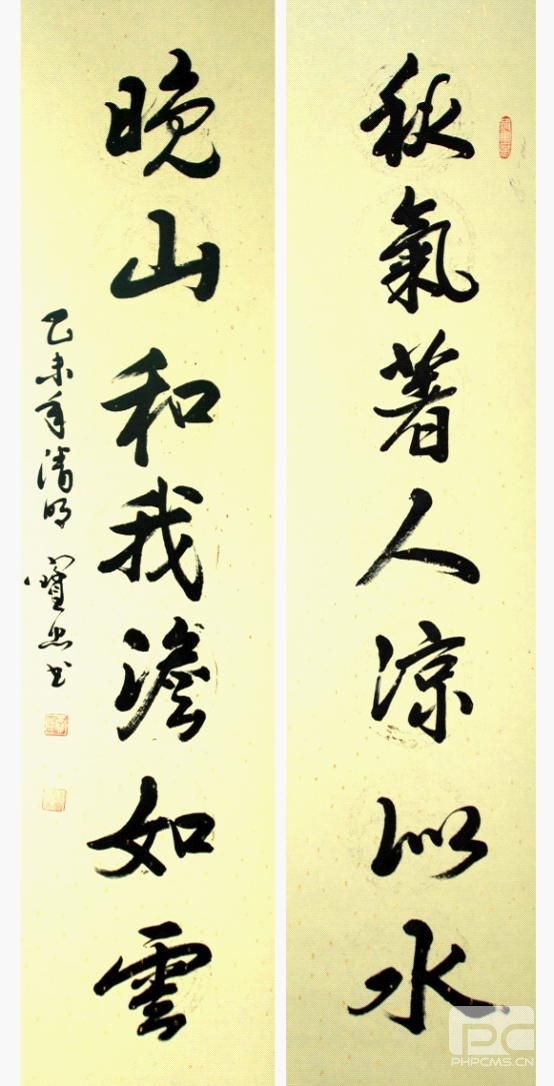 秋氣著人涼似水
晚山和我澹如雲
乙未年清明 寶忠書
PC
PHPCMS.CN